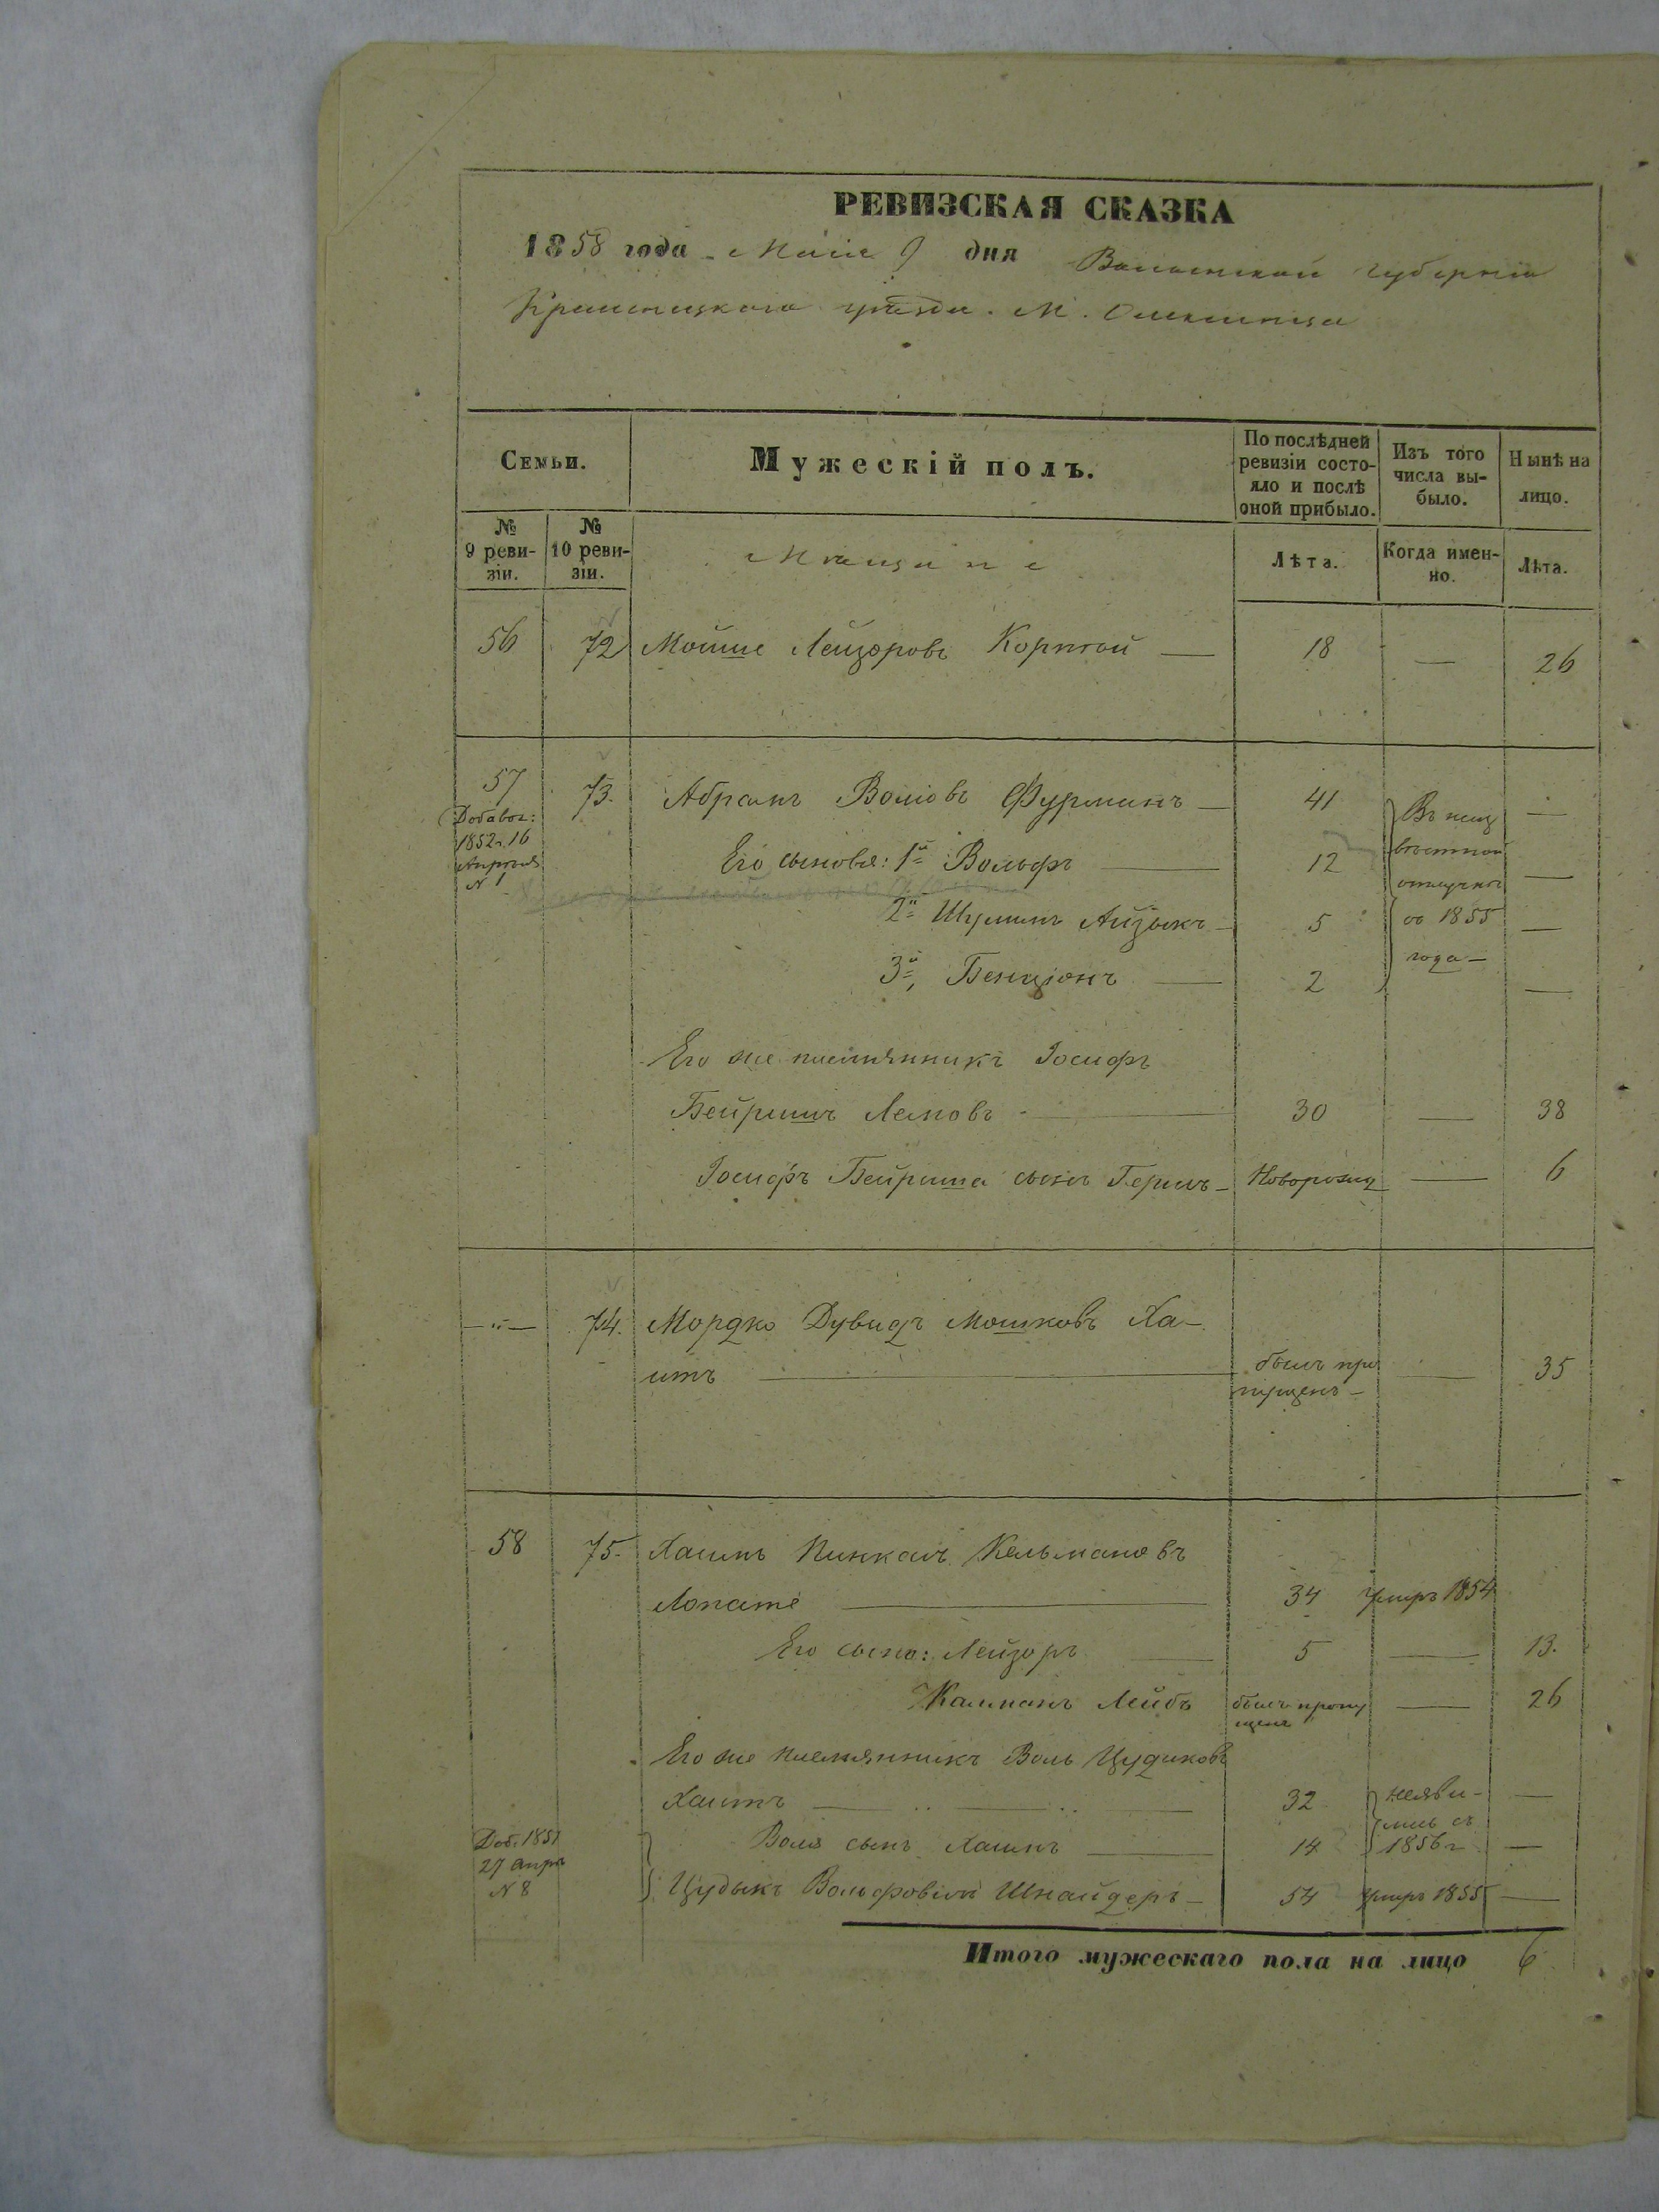 РЕВИЗСКАЯ СКАЗКА
1858 года Маія 9 дня Волынской губерніи
Кременецкаго уѣзда. М.
Семьи.
Мужескій полъ.
По послѣдней ревизіи состо-
яло и послѣ
оной прибыло.
Изъ того
числа вы-
было.
Нынѣ на
лицо.
№
9 реви-
зіи.
№
10 реви-
зіи.
Мѣщане
Лѣта.
Когда имен-
но.
Лѣта.
56 72 Мойше Лейзоровъ 18 — 26
57 73. Абрамъ Волковъ Фурманъ — 41 —
Добавоч:
1852 г. 16
Апрѣля
N 1
Въ неиз
вѣстной
отлучкѣ
съ 1855
года —
Его сыновья: 1й Вольфъ — 12 —
2й Шулимъ Айзыкъ — 5 —
3й, Бенціонъ — 2 —
Его же племянникъ Іосифъ
Бейришъ Лемовъ — 30 — 38
Іосифъ Бейриша сынъ Гершъ — Новорожд — 6
—"— 74. Мордко Дувидъ Мошковъ Ха-
итъ — былъ про
пущенъ — — 35
58 75. Хаимъ Пинкасъ Кельмановъ
Лопате — 34 Умеръ 1854
Его сыно: Лейзоръ — 5 — 13.
Калманъ Лейбъ былъ пропу
щенъ — 26
Его же племянникъ Воль Цудиковъ
Хаитъ — 32 неяви-
лись съ
1856 г —
Воля сынъ Хаимъ — 14 —
Доб. 1851
27 апрѣ
N 8
Цудыкъ Вольфовичъ Шнайдеръ — 54 Умеръ 1855 —
Итого мужескаго пола на лицо 6